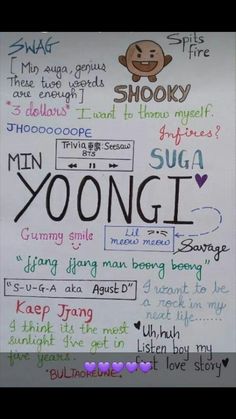 SWAG
Spits
fire
[ Min suga, genius
These two words
are enough ]
SHOOKY
"3 dollars"
I want to throw myself.
JHOOOOOOPE
Infires?
Trivia 轉: Seesaw
BTS
MIN
SUGA
YOONGI
Gummy smile
Lil
meow meow
Savage
"jjang jjang man boong boong"
"S-U-G-A aka Agust D"
I want to be
a rock in my
next life......
Kaep Jjang
I think its the most
sunlight I've got in
five years.
Uh, huh
Listen boy my
first love story
"BULTAOREUNE"